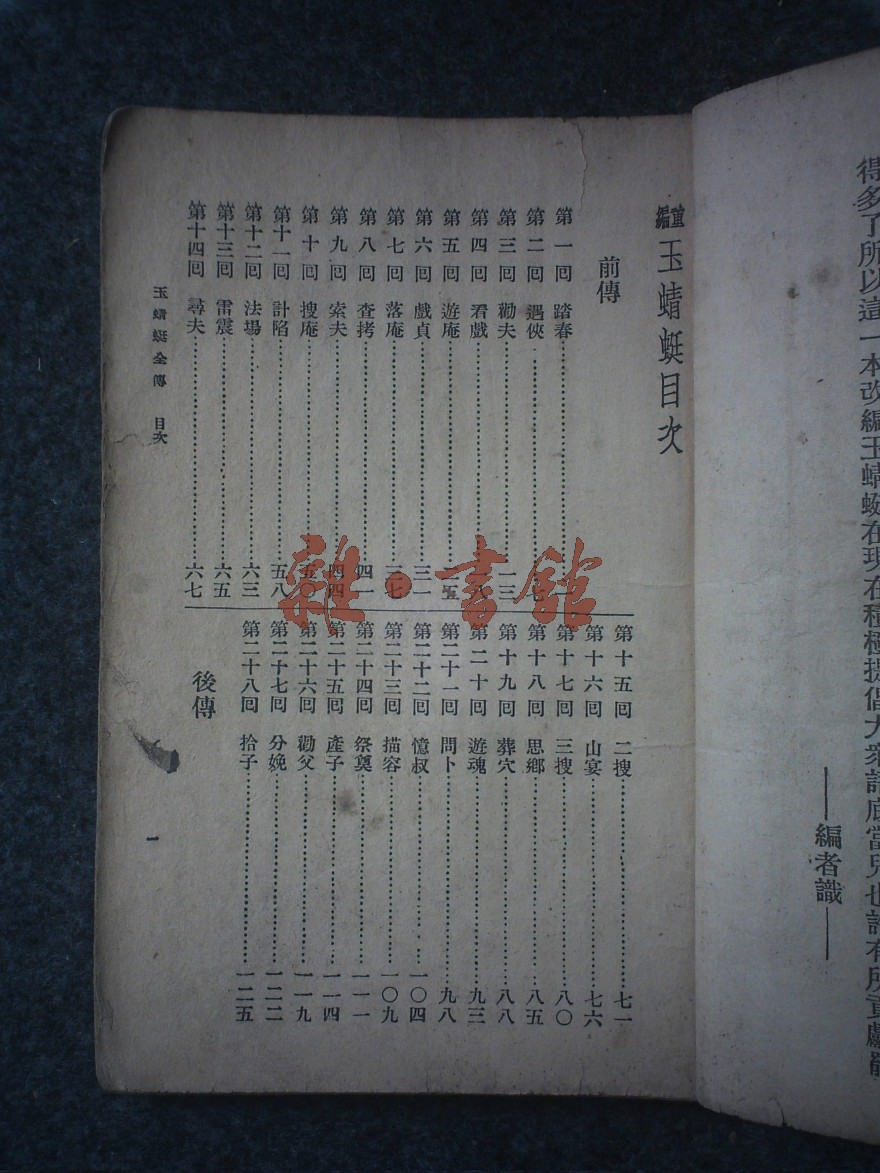 得多了所以這一本改編玉蜻蜓在現在積極提倡大衆語底當兒也許有所貢獻罷
——編者識——
重編玉蜻蜓目次
前傳
第一回 踏春
第二回 遇俠 七
第三回 勸夫 一三
第四回 看戲 一八
第五回 遊庵 二五
第六回 戲貞 三一
第七回 落庵 三七
第八回 查拷 四一
第九回 索夫 四四
第十回 搜庵 五〇
第十一回 計陷 五八
第十二回 法場 六三
第十三回 雷震 六五
第十四回 尋夫 六七
第十五回 二搜 七一
第十六回 山宴 七六
第十七回 三搜 八〇
第十八回 思鄉 八五
第十九回 葬穴 八八
第二十回 遊魂 九三
第二十一回 問卜 九八
第二十二回 憶叔 一〇四
第二十三回 描容 一〇九
第二十四回 祭奠 一一一
第二十五回 產子 一一四
第二十六回 勸父 一一九
第二十七回 分娩 一二二
第二十八回 拾子 一二五
後傳
玉蜻蜓全傳 目次
一
雜·書館